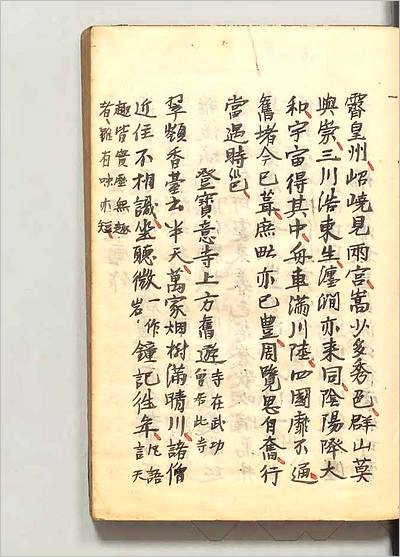 霽皇州岧嶢見兩宮嵩少多秀色群山莫
與崇三川浩東生瀍澗亦来同陰陽降大
和宇宙得其中舟車滿川陸四國靡不通
舊堵今已葺庶甿亦已豐周覽思自奮行
當遇時邕
登寶意寺上方舊遊寺在武功曾居此寺
翠嶺香臺出半天萬家烟樹滿晴川諸僧
近住不相識坐聽微一作岩鐘記往年凡語言天
趣皆實歷無趣
者雖有味亦短